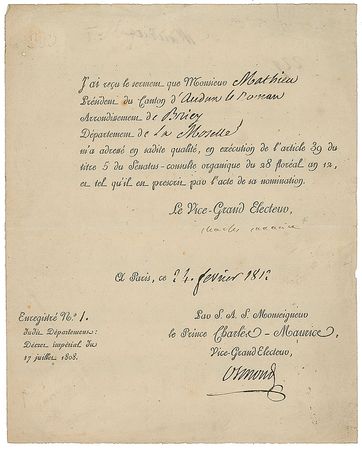 J'ai reçu le serment que Monsieur Mathieu
Président du Canton d'Audun le Roman
Arrondissement de Briey
Département de La Moselle
m'a adressé en sadite qualité, en exécution de l'article 39 du
titre 5 du Senatus-consulte organique du 28 floréal an 12,
et tel qu'il est prescrit par l'acte de sa nomination.
Le Vice-Grand Electeur,
charles maurice
A Paris, ce 24 février 1812
Enregistré N.º 1.
Judit Département:
Décret impérial du
17 juillet 1808.
Par S. A. S. Monseigneur
le Prince Charles-Maurice,
Vice-Grand Electeur,
Osmond